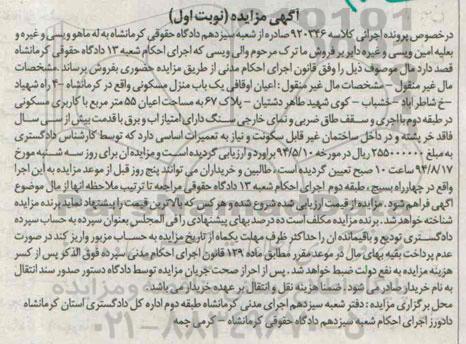 آگهی مزایده (نوبت اول)
درخصوص پرونده اجرائی کلاسه ۹۲۰۳۴۶ صادره از شعبه سیزدهم دادگاه حقوقی کرمانشاه به له ماهو ویسی و غیره و
بعلیه امین ویسی و غیره دایر بر فروش ما ترک مرحوم والی ویسی که اجرای احکام شعبه ۱۳ دادگاه حقوقی کرمانشاه
قصد دارد مال موصوف ذیل را وفق قانون اجرای احکام مدنی از طریق مزایده حضوری بفروش برساند. مشخصات
مال غیر منقول - مشخصات مال غیر منقول: اعیان اوقافی یک باب منزل مسکونی واقع در کرمانشاه - ۴ راه شهیاد
- خ شاطر اباد - خشباب - کوی شهید طاهر دشتیان - پلاک ۶۷ به مساحت اعیان ۵۵ متر مربع با کاربری مسکونی
در طبقه دوم با اجری و سقف طاق ضربی و نمای خارجی سنگ دارای امتیاز اب و برق با قدمت بیش از سی سال
فاقد خر پشته و در داخل ساختمان غیر قابل سکونت و نیاز به تعمیرات اساسی دارد که توسط کارشناس دادگستری
به مبلغ ۲۵۵۰۰۰۰۰۰ ریال در مورخه ۹۴/۵/۱۰ براورد و ارزیابی گردیده است و مزایده ان برای روز سه شنبه مورخ
۹۴/۸/۱۷ ساعت ۱۰ صبح تعیین گردیده است، طالبین و خریداران می توانند پنج روز قبل از موعد مزایده به این اجرا
واقع در چهارراه بسیج، طبقه دوم اجرای احکام شعبه ۱۳ دادگاه حقوقی مراجعه تا ترتیب ملاحظه انها از مال موضوع
آگهی فراهم شود. مزایده از قیمت ارزیابی شده شروع شده و هر کس که بالاترین قیمت را پیشنهاد نماید برنده مزایده
شناخته خواهد شد. برنده مزایده مکلف است ده درصد بهای پیشنهادی را فی المجلس بعنوان سپرده به حساب سپرده
دادگستری تودیع و باقیمانده ان را حداکثر ظرف مهلت یکماه از تاریخ مزایده به حساب مزبور واریز کند در صورت
عدم پرداخت بقیه بهای مال در موعد مقرر مطابق ماده ۱۲۹ قانون اجرای احکام مدنی سپرده فوق الذکر پس از کسر
هزینه مزایده به نفع دولت ضبط خواهد شد. پس از احراز صحت جریان مزایده توسط دادگاه دستور صدور سند انتقال
به نام خریدار صادر می شود. ضمنا هزینه نقل و انتقال بر عهده خریدار می باشد.
محل برگزاری مزایده: دفتر شعبه سیزدهم اجرای مدنی کرمانشاه طبقه دوم اداره کل دادگستری استان کرمانشاه
دادورز اجرای احکام شعبه سیزدهم دادگاه حقوقی کرمانشاه - کرمی چمه